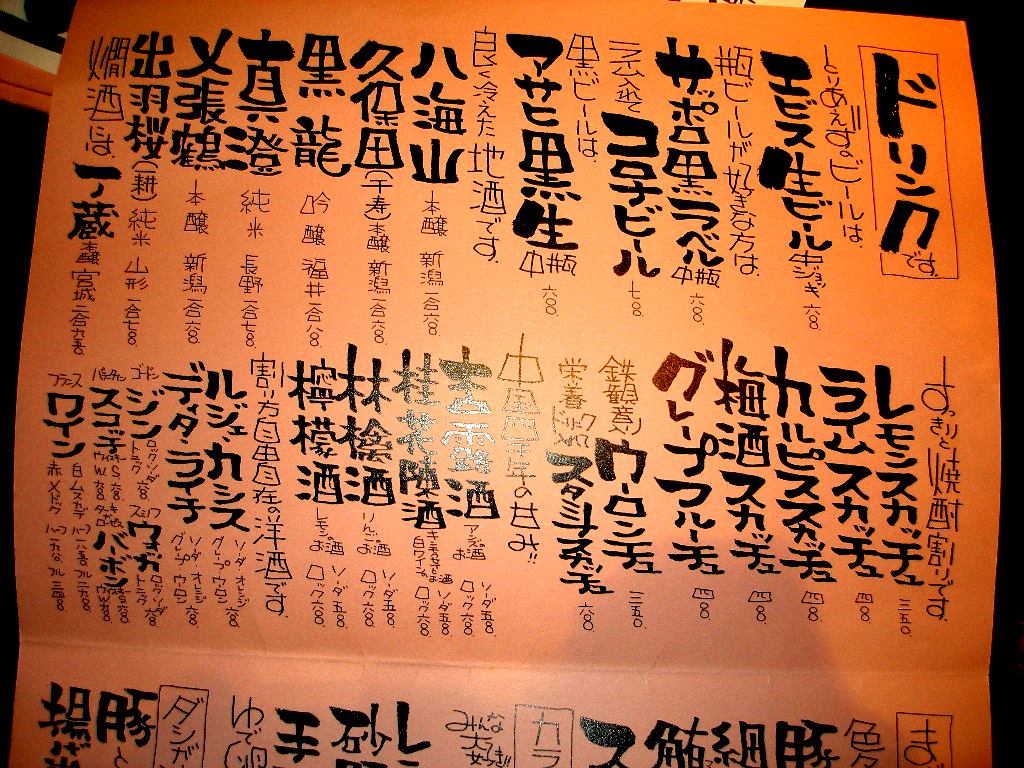 ドリンクです。
とりあえずのビールは、
エビス生ビール 中ジョッキ 六〇〇
瓶ビールが好きな方は
サッポロ黒ラベル 中瓶 六〇〇
ライム入れて
コロナビール 七〇〇
黒ビールは、
アサヒ黒生 中瓶 六〇〇
良く冷えた地酒です。
八海山 本醸 新潟 一合六〇〇
久保田(千寿) 本醸 新潟 一合六〇〇
黒龍 吟醸 福井 一合八〇〇
真澄 純米 長野 一合七〇〇
〆張鶴 本醸 新潟 一合六〇〇
出羽桜(耕) 純米 山形 一合七〇〇
燗酒には、一ノ蔵 本醸 宮城 二合九五〇
すっきりと焼酎割りです。
レモンスカッチュ 三五〇
ライムスカッチュ 四〇〇
カルピスカッチュ 四〇〇
梅酒スカッチュ 四〇〇
グレープフルーチュ 四〇〇
鉄観音入り ウーロンチュ 三五〇
栄養ドリンク スタミナスカッチュ 六〇〇
中国四千年の甘み!!
杏露酒 アンズのお酒 ソーダ五五〇 ロック六〇〇
桂花陳酒 ソーダ五五〇 ロック六〇〇
林檎酒 りんごのお酒 ソーダ五五〇 ロック六〇〇
檸檬酒 レモンのお酒 ソーダ五五〇 ロック六〇〇
割り方自由自在の洋酒です。
ルジェ・カシス ソーダ オレンジ グレープ ウーロン 六〇〇
ディタ・ライチ ソーダ オレンジ グレープ ウーロン 六〇〇
ゴードン ジン ロック ソーダ トニック 六〇〇
ウォッカ ロック ソーダ トニック 六〇〇
スコッチ
バーボン
フランス ワイン 赤 白
ま
色々
豚
細
鮪
ス
カラ
みんな大好き!!
レ
砂肝
手
ゆで卵
ダシが
豚と
揚げ